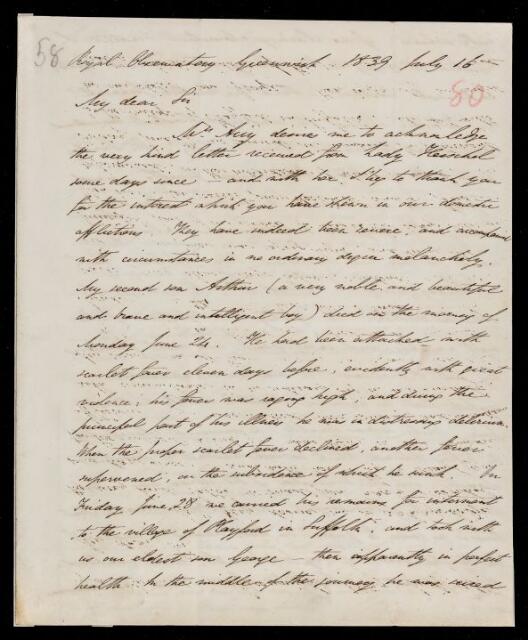 58
Royal Observatory Greenwich 1839 July 16
80
My dear Sir
Mrs Airy desires me to acknowledge
the very kind letter received from Lady Herschel
some days since and with her I beg to thank you
for the interest which you have shewn in our domestic
afflictions. They have indeed been severe and accompanied
with circumstances in no ordinary degree melancholy.
My second son Arthur (a very noble and beautiful
and brave and intelligent boy) died in the morning of
Monday June 24. He had been attacked with
scarlet fever eleven days before, evidently with great
violence; his fever was raging high, and during the
principal part of his illness he was in distressing delirium.
When the proper scarlet fever declined, another fever
supervened, on the subsidence of which he sunk. On
Friday June 28 we carried his remains for interment
to the village of Playford in Suffolk, and took with
us our eldest son George – then apparently in perfect
health. In the middle of the journey he was seized